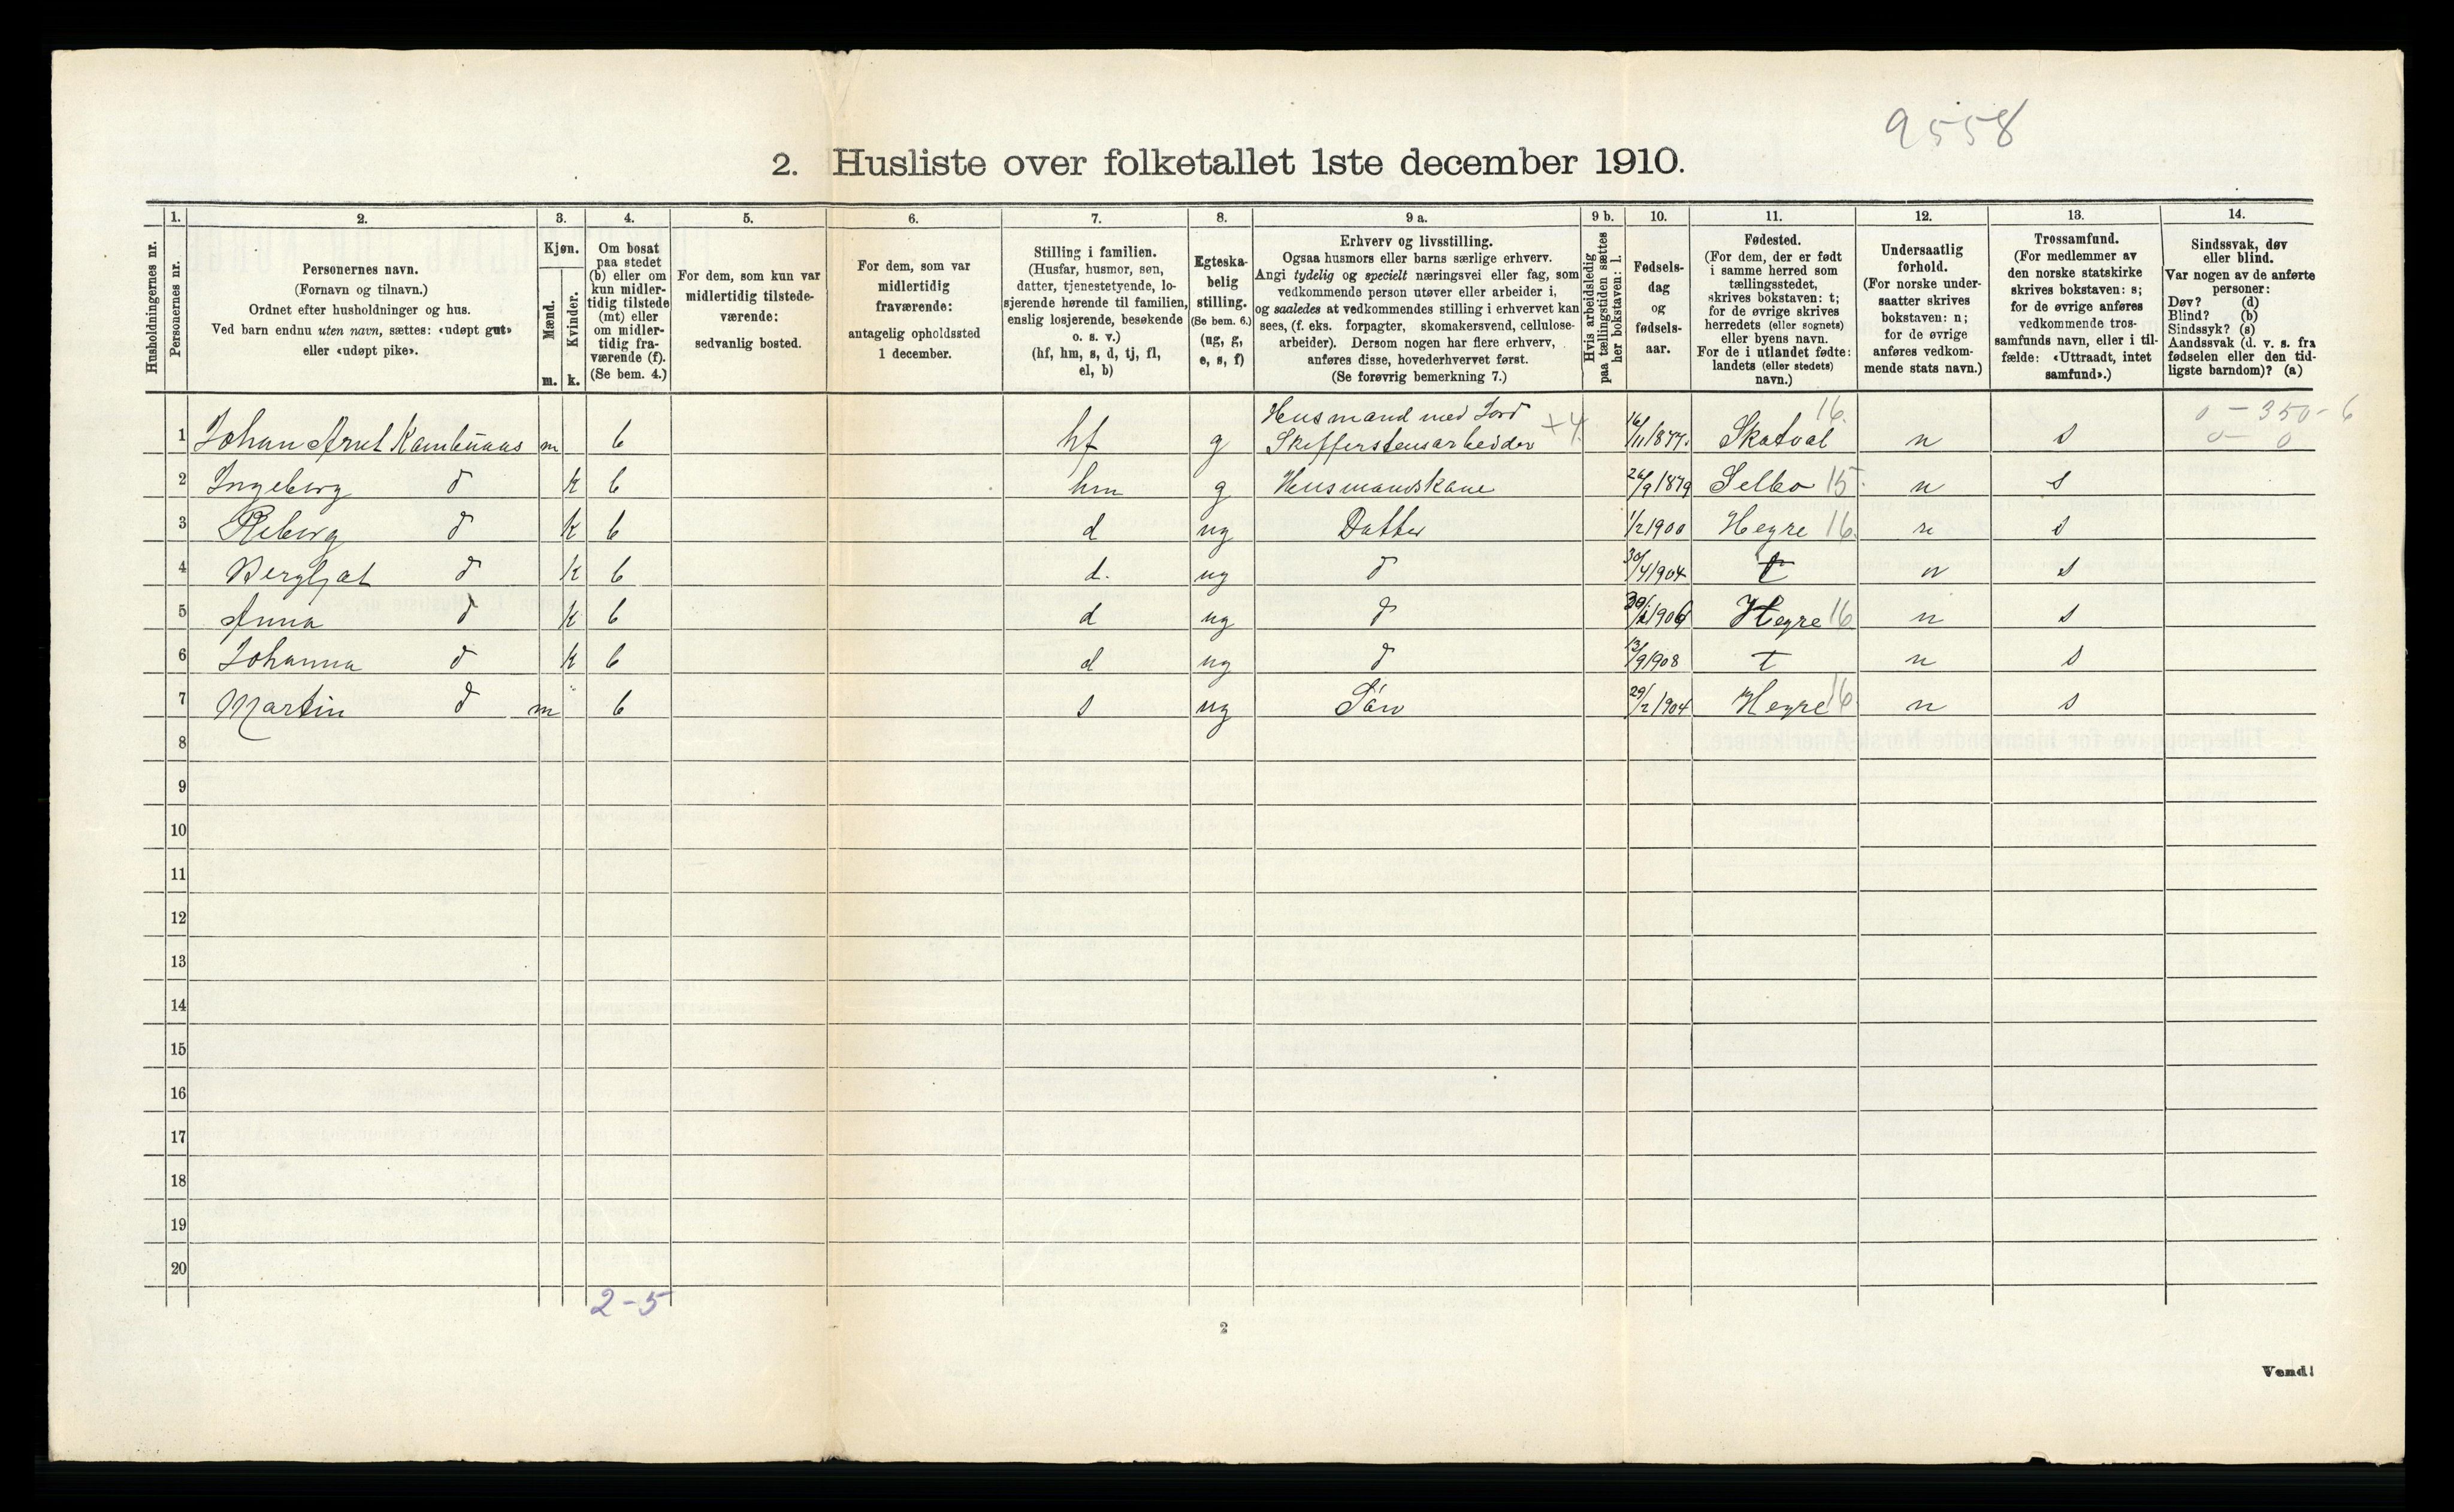 9558
2. Husliste over folketallet 1ste december 1910.
Husholdningernes nr.
1.
Personernes nr.
2.
Personernes navn.
(Fornavn og tilnavn.)
Ordnet efter husholdninger og hus.
Ved barn endnu uten navn, sættes: «udøpt gut»
eller «udøpt pike».
3.
Kjøn.
Mænd.
m.
Kvinder.
k.
4.
Om bosat
paa stedet
(b) eller om
kun midler-
tidig tilstede
(mt) eller
om midler-
tidig fra-
værende (f).
(Se bem. 4.)
5.
For dem, som kun var
midlertidig tilstede-
værende:
sedvanlig bosted.
6.
For dem, som var
midlertidig
fraværende:
antagelig opholdssted
1 december.
7.
Stilling i familien.
(Husfar, husmor, søn,
datter, tjenestetyende, lo-
sjerende hørende til familien,
enslig losjerende, besøkende
o. s. v.)
(hf, hm, s, d, tj, fl,
el, b)
8.
Egteska-
belig
stilling.
(Se bem. 6.)
(ug, g,
e, s, f)
9 a.
Erhverv og livsstilling.
Ogsaa husmors eller barns særlige erhverv.
Angi tydelig og specielt næringsvei eller fag, som
vedkommende person utøver eller arbeider i,
og saaledes at vedkommendes stilling i erhvervet kan
sees, (f. eks. forpagter, skomakersvend, cellulose-
arbeider). Dersom nogen har flere erhverv,
anføres disse, hovederhvervet først.
(Se forøvrig bemerkning 7.)
9 b.
Hvis arbeidsledig
paa tællingstiden sættes
her bokstaven: l.
10.
Fødsels-
dag
og
fødsels-
aar.
11.
Fødested.
(For dem, der er født
i samme herred som
tællingsstedet,
skrives bokstaven: t;
for de øvrige skrives
herredets (eller sognets)
eller byens navn.
For de i utlandet fødte:
landets (eller stedets)
navn.)
12.
Undersaatlig
forhold.
(For norske under-
saatter skrives
bokstaven: n;
for de øvrige
anføres vedkom-
mende stats navn.)
13.
Trossamfund.
(For medlemmer av
den norske statskirke
skrives bokstaven: s;
for de øvrige anføres
vedkommende tros-
samfunds navn, eller i til-
fælde: «Uttraadt, intet
samfund».)
14.
Sindssvak, døv
eller blind.
Var nogen av de anførte
personer:
Døv? (d)
Blind? (b)
Sindssyk? (s)
Aandssvak (d. v. s. fra
fødselen eller den tid-
ligste barndom)? (a)
Husmand med Jord 16. 0 - 350 - 6
1 Johan Arnt m b hf g Skifferstensarbeider +4. 16/11 1877. Skatval n s 0 - 0
2 Ingeborg d k b hm g Husmandskone 26/9 1879 Selbo 15. n s
3 d k b d ug Datter 1/2 1900 Hegre 16. n s
4 Bergljot d k b d. ug d 30/4 1904 t n s
5 Anna d k b d ug d 1906 Hegre 16 n s
6 Johanna d k b d ug d 13/9 1908 t n s
7 Martin d m b s ug Søn 29/2 1904 Hegre 16 n s
8
9
10
11
12
13
14
15
16
17
18
19
20
2-5
2
Vend!